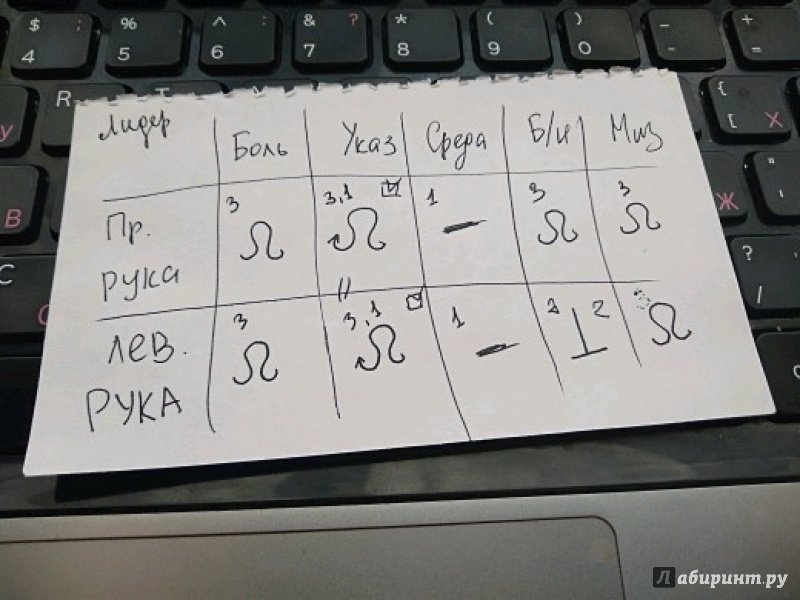 $ ; 4
% 5
^ : 6
& ? 7
* 8
( 9
) 0
_ -
+ =
R
{ [ Х
У
В
Ж
" '
? /
C
Лидер Боль Указ Среда Б/и Миз
3 3,1 1 3 3
Пр. Ω Ω – Ω Ω
РУКА
//
3 3,1 1 2 2 3
ЛЕВ. Ω Ω – ⊥ Ω
РУКА
Лабиринт.ру